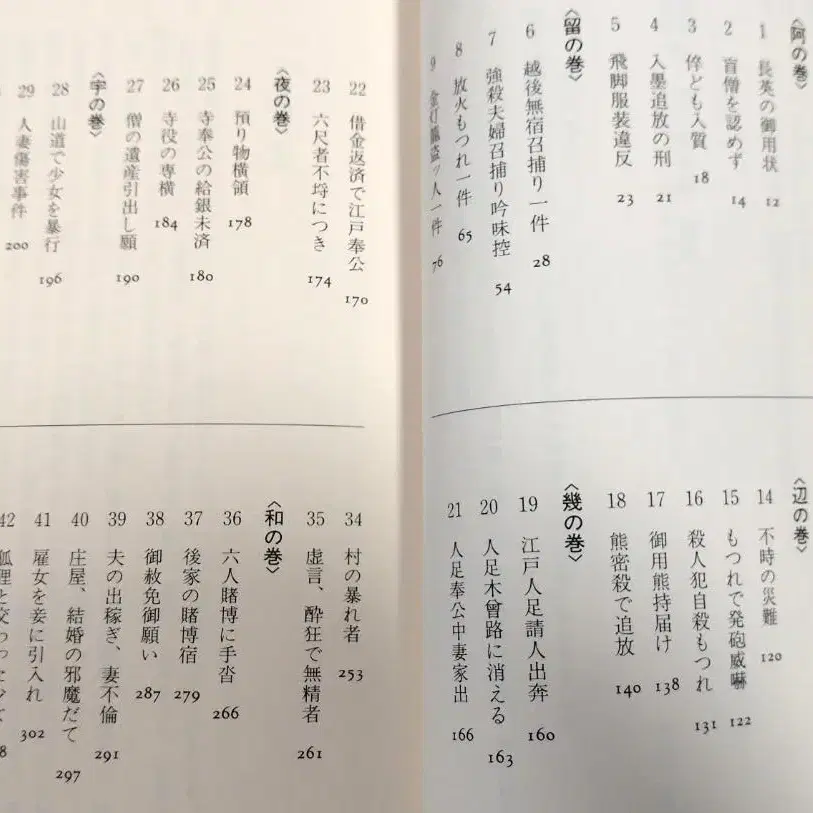 〈阿の巻〉
1 長英の御用状 12
2 盲僧を認めず 14
3 倅ども入質 18
4 入墨追放の刑 21
5 飛脚服装違反 23
〈留の巻〉
6 越後無宿召捕り一件 28
7 強殺夫婦召捕り吟味控 54
8 放火もつれ一件 65
9 金灯籠盗ッ人一件 76
〈辺の巻〉
14 不時の災難 120
15 もつれで発砲威嚇 122
16 殺人犯自殺もつれ 131
17 御用熊持届け 138
18 熊密殺で追放 140
〈幾の巻〉
19 江戸人足請人出奔 160
20 人足木曾路に消える 163
21 人足奉公中妻家出 166
22 借金返済で江戸奉公 170
23 六尺者不埒につき 174
〈夜の巻〉
24 預り物横領 178
25 寺奉公の給銀未済 180
26 寺役の専横 184
27 僧の遺産引出し願 190
〈宇の巻〉
28 山道で少女を暴行 196
29 人妻傷害事件 200
34 村の暴れ者 253
35 虚言、酔狂で無精者 261
〈和の巻〉
36 六人賭博に手沓 266
37 後家の賭博宿 279
38 御赦免御願い 287
39 夫の出稼ぎ、妻不倫 291
40 庄屋、結婚の邪魔だて 297
41 雇女を妾に引入れ 302
42 狐狸と交わった少女